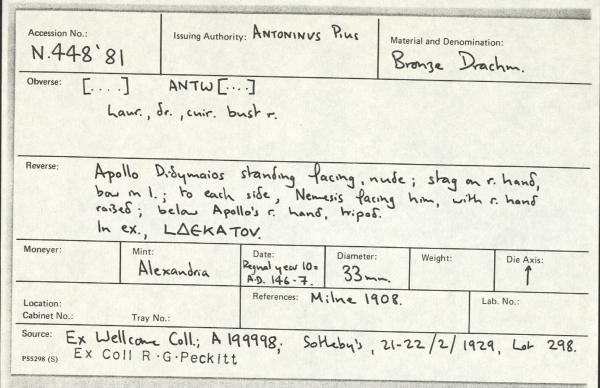 Accession No.:
N.448'81
Issuing Authority: ANTONINVS PIUS
Material and Denomination:
Bronze Drachm.
Obverse: [....] ANTW [....]
Laur., dr., cuir. bust r.
Reverse: Apollo Didymaios standing facing, nude; stag on r. hand,
bow in l.; to each side, Nemesis facing him, with r. hand
raised; below Apollo's r. hand, tripod.
In ex., LΔEKATOV.
Moneyer:
Mint:
Alexandria
Date:
Regnal year 10=
A.D. 146-7.
Diameter:
33mm.
Weight:
Die Axis:
↑
Location:
Cabinet No.: Tray No.:
References: Milne 1908.
Lab. No.:
Source: Ex Wellcome Coll.; A 199998; Sotheby's, 21-22/2/1929, Lot 298.
P55298 (S) Ex Coll R.G.Peckitt